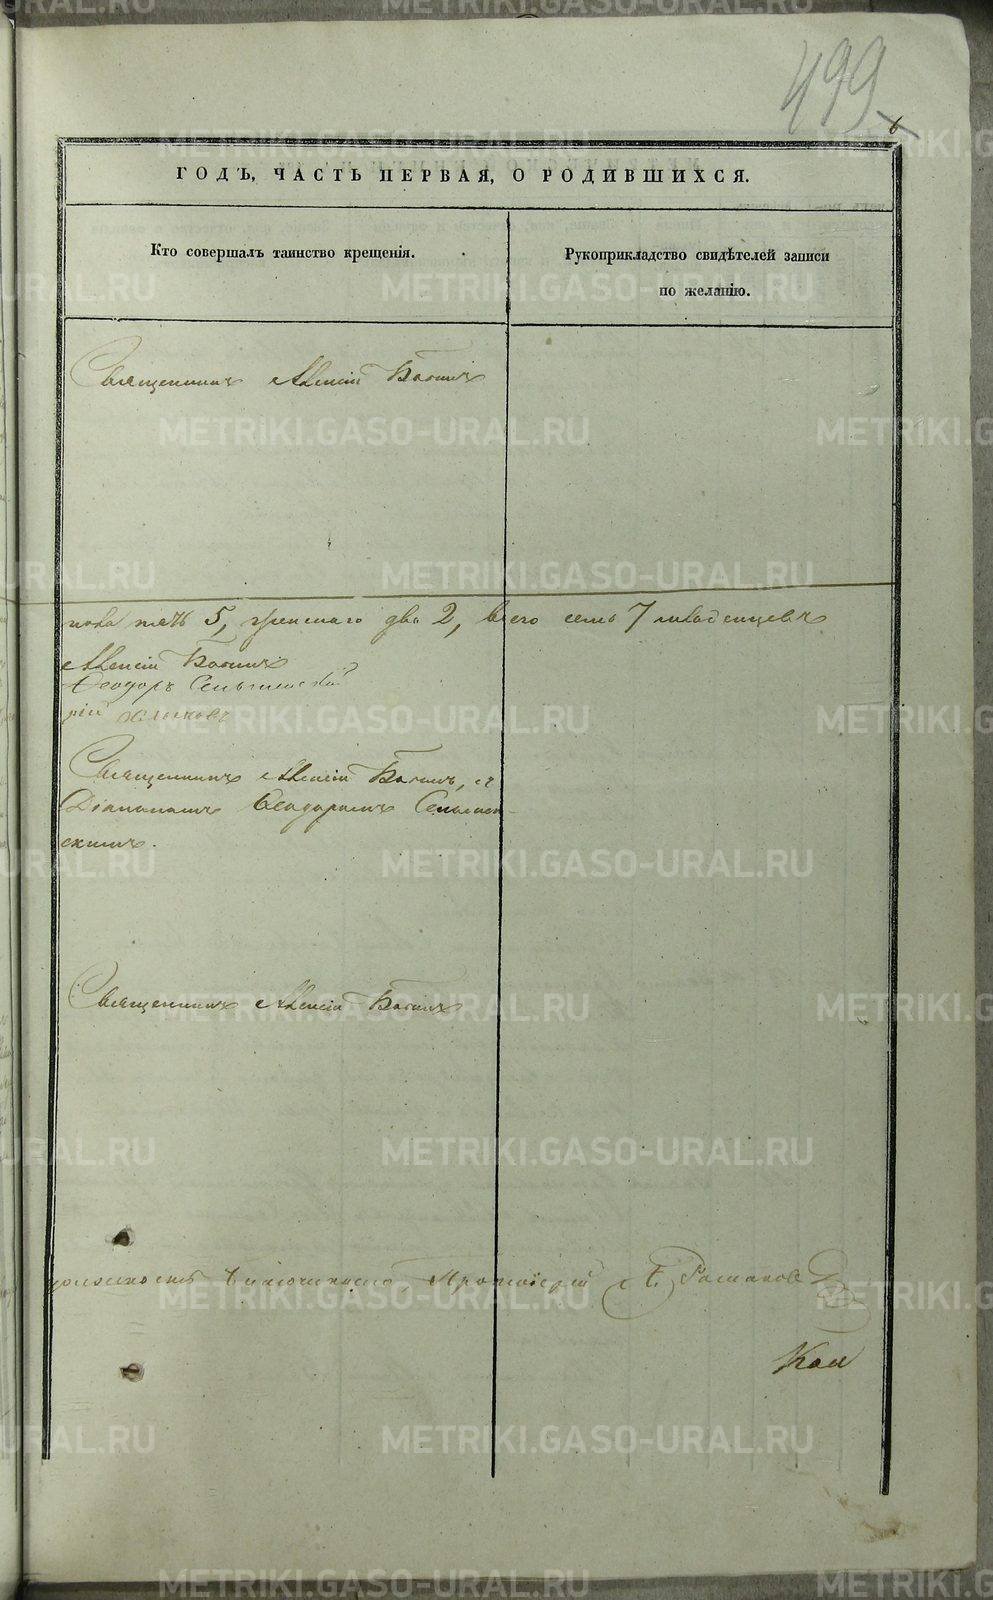 499
6
ГОДЪ, ЧАСТЬ ПЕРВАЯ, О РОДИВШИХСЯ.
Кто совершалъ таинство крещенія.
Рукоприкладство свидѣтелей записи
по желанію.
Священникъ Алексій
пола пять 5, женскаго два 2, всего семь 7 младенцевъ
Алексій
Ѳеодоръ
рій
Священникъ Алексій съ
Діакономъ Ѳеодоромъ
скимъ.
Священникъ Алексій
должность благочиннаго Протоіерей Романовъ
METRIKI.GASO-URAL.RU